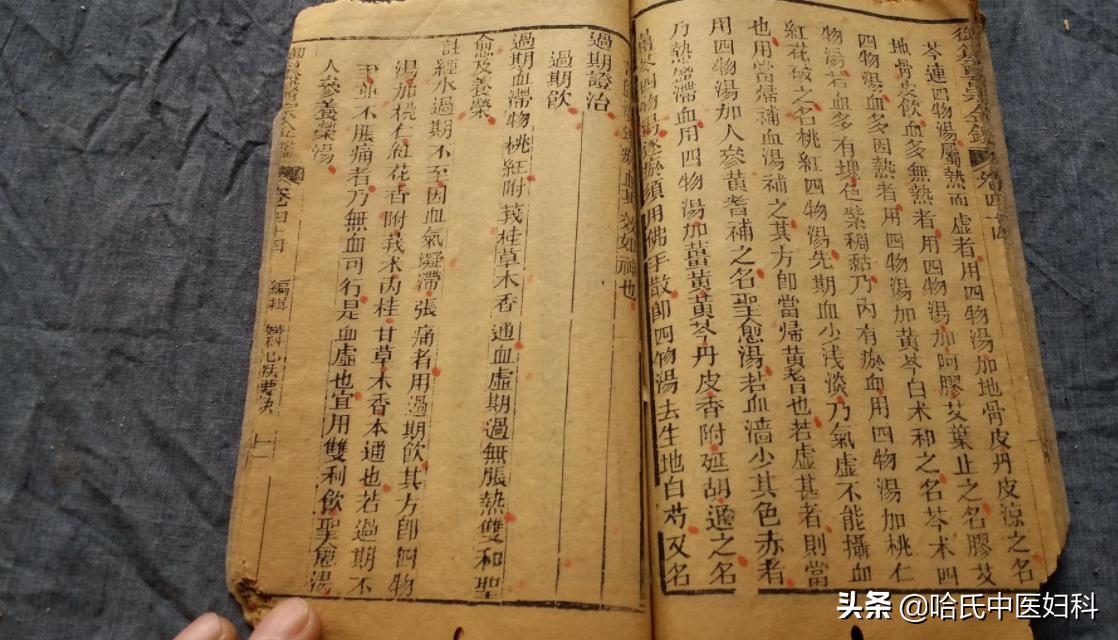 芩連四物湯屬熱而虛者用四物湯加地骨皮丹皮涼之名
地骨皮飲血多無熱者用四物湯加阿膠艾葉止之名膠艾
四物湯血多因熱者用四物湯加黃芩白术和之名芩术四
物湯若血多有塊色紫稠黏乃內有瘀血用四物湯加桃仁
紅花破之名桃紅四物湯先期血少淺淡乃氣虛不能攝血
也用當歸補血湯補之其方卽當歸黃耆也若虛甚者則當
用四物湯加人參黃耆補之名聖愈湯若血濇少其色赤者
乃熱盛滯血用四物湯加薑黃黃芩丹皮香附延胡通之名
四物湯逐瘀須用佛手散卽四物湯去生地白芍又名
效如神也
過期證治
過期飲
過期血滯物桃紅附莪桂草木香通血虛期過無脹熱雙和聖
愈及養榮
註經水過期不至因血氣凝滯張痛者用過期飲其方卽四物
湯加桃仁紅花香附莪术肉桂甘草木香木通也若過期不
至並不脹痛者乃無血可行是血虛也宜用雙利飲聖愈湯
人參養榮湯
卷四十四 編輯 婦科心法要訣 一
头条 @哈氏中医妇科